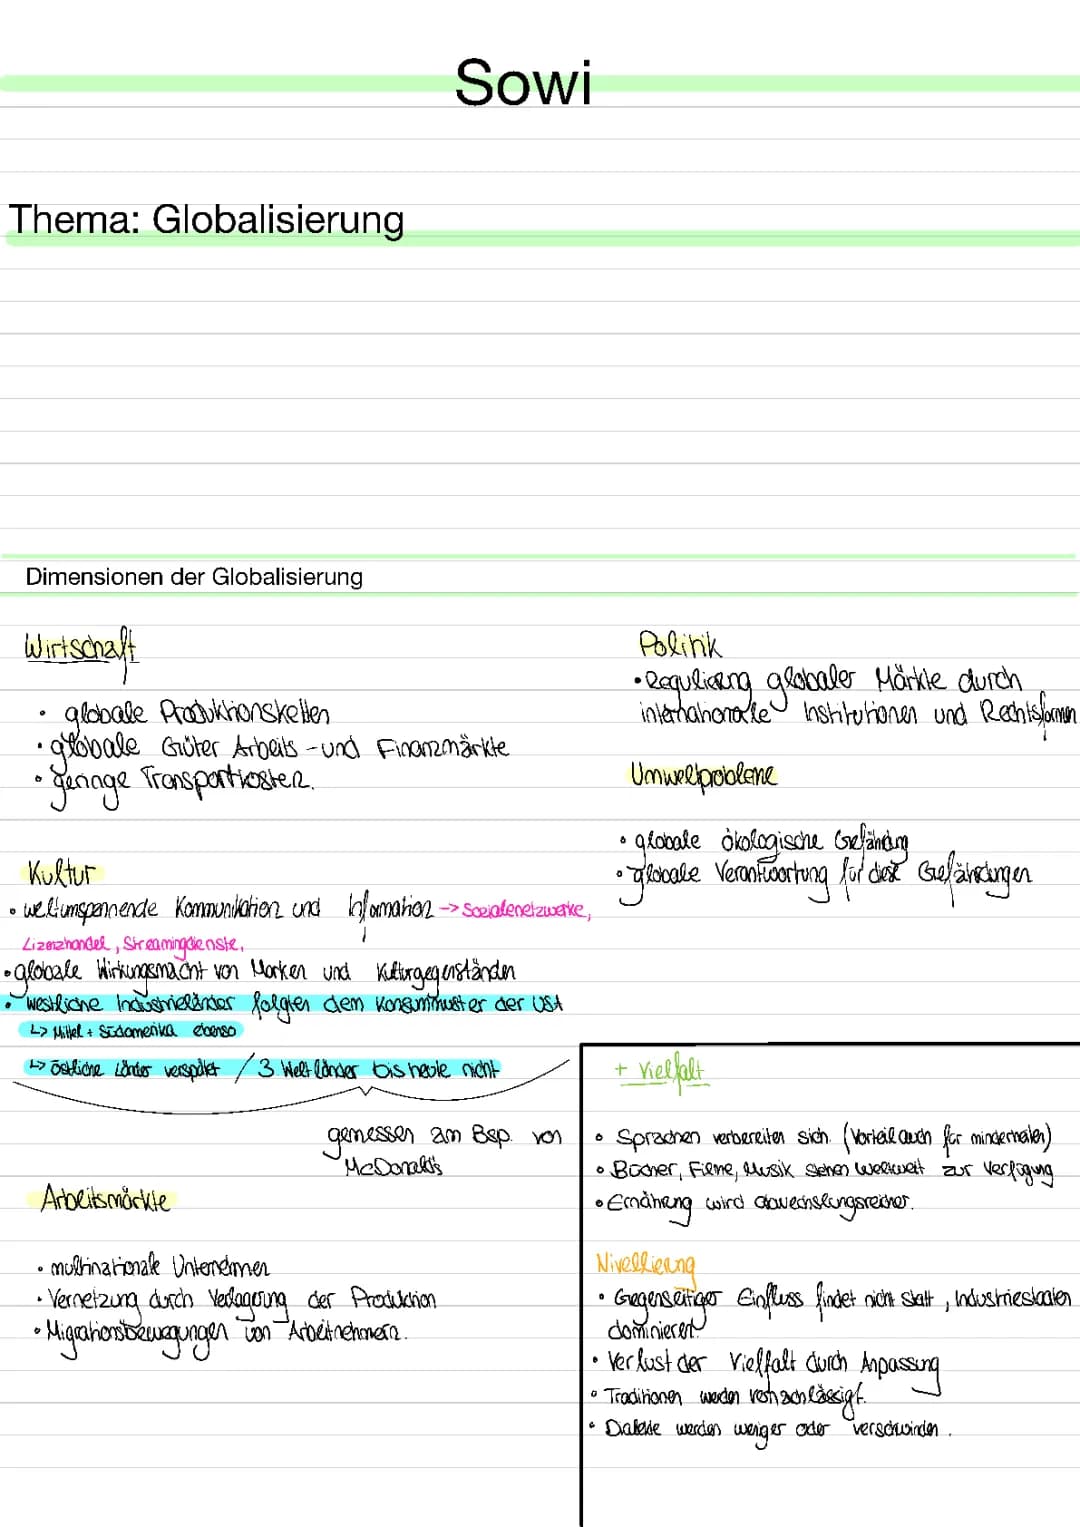 Sowi
Thema: Globalisierung
Dimensionen der Globalisierung
Wirtschaft
• globale Produktionsketten
• globale Güter Arbeits -und Finanzmärkte
• geringe Transportkosten.
Kultur
• weltumspannende Kommunikation und Information -> Sozialenetzwerke,
Lizenzhandel, Streamingdienste,
• globale Wirkungsmacht von Marken und Kulturgegenständen
• westliche Industrieländer folgten dem Konsummuster der USA
↳ Mittel + Südamerika ebenso
↳ östliche Länder verspätet / 3 Welt länder bis heute nicht
gemessen am Bsp. von
McDonald's
Arbeitsmärkte
• multinationale Unternehmen
• Vernetzung durch Verlagerung der Produktion
• Migrationsbewegungen von Arbeitnehmern.
Politik
• Regulierung globaler Märkte durch
internationale Institutionen und Rechtsformen
Umweltprobleme
• globale ökologische Gefährdung
• globale Verantwortung für diese Gefährdungen
+ Vielfalt
• Sprachen verbereiten sich. (Vorteil auch für minderheiten)
• Bücher, Filme, Musik stehen weltweit zur Verfügung
• Ernährung wird abwechslungsreicher.
Nivellierung
• Gegenseitiger Einfluss findet nicht statt, Industriestaaten
dominieren.
• Verlust der Vielfalt durch Anpassung
• Traditionen werden vernachlässigt.
• Dialekte werden weniger oder verschwinden.